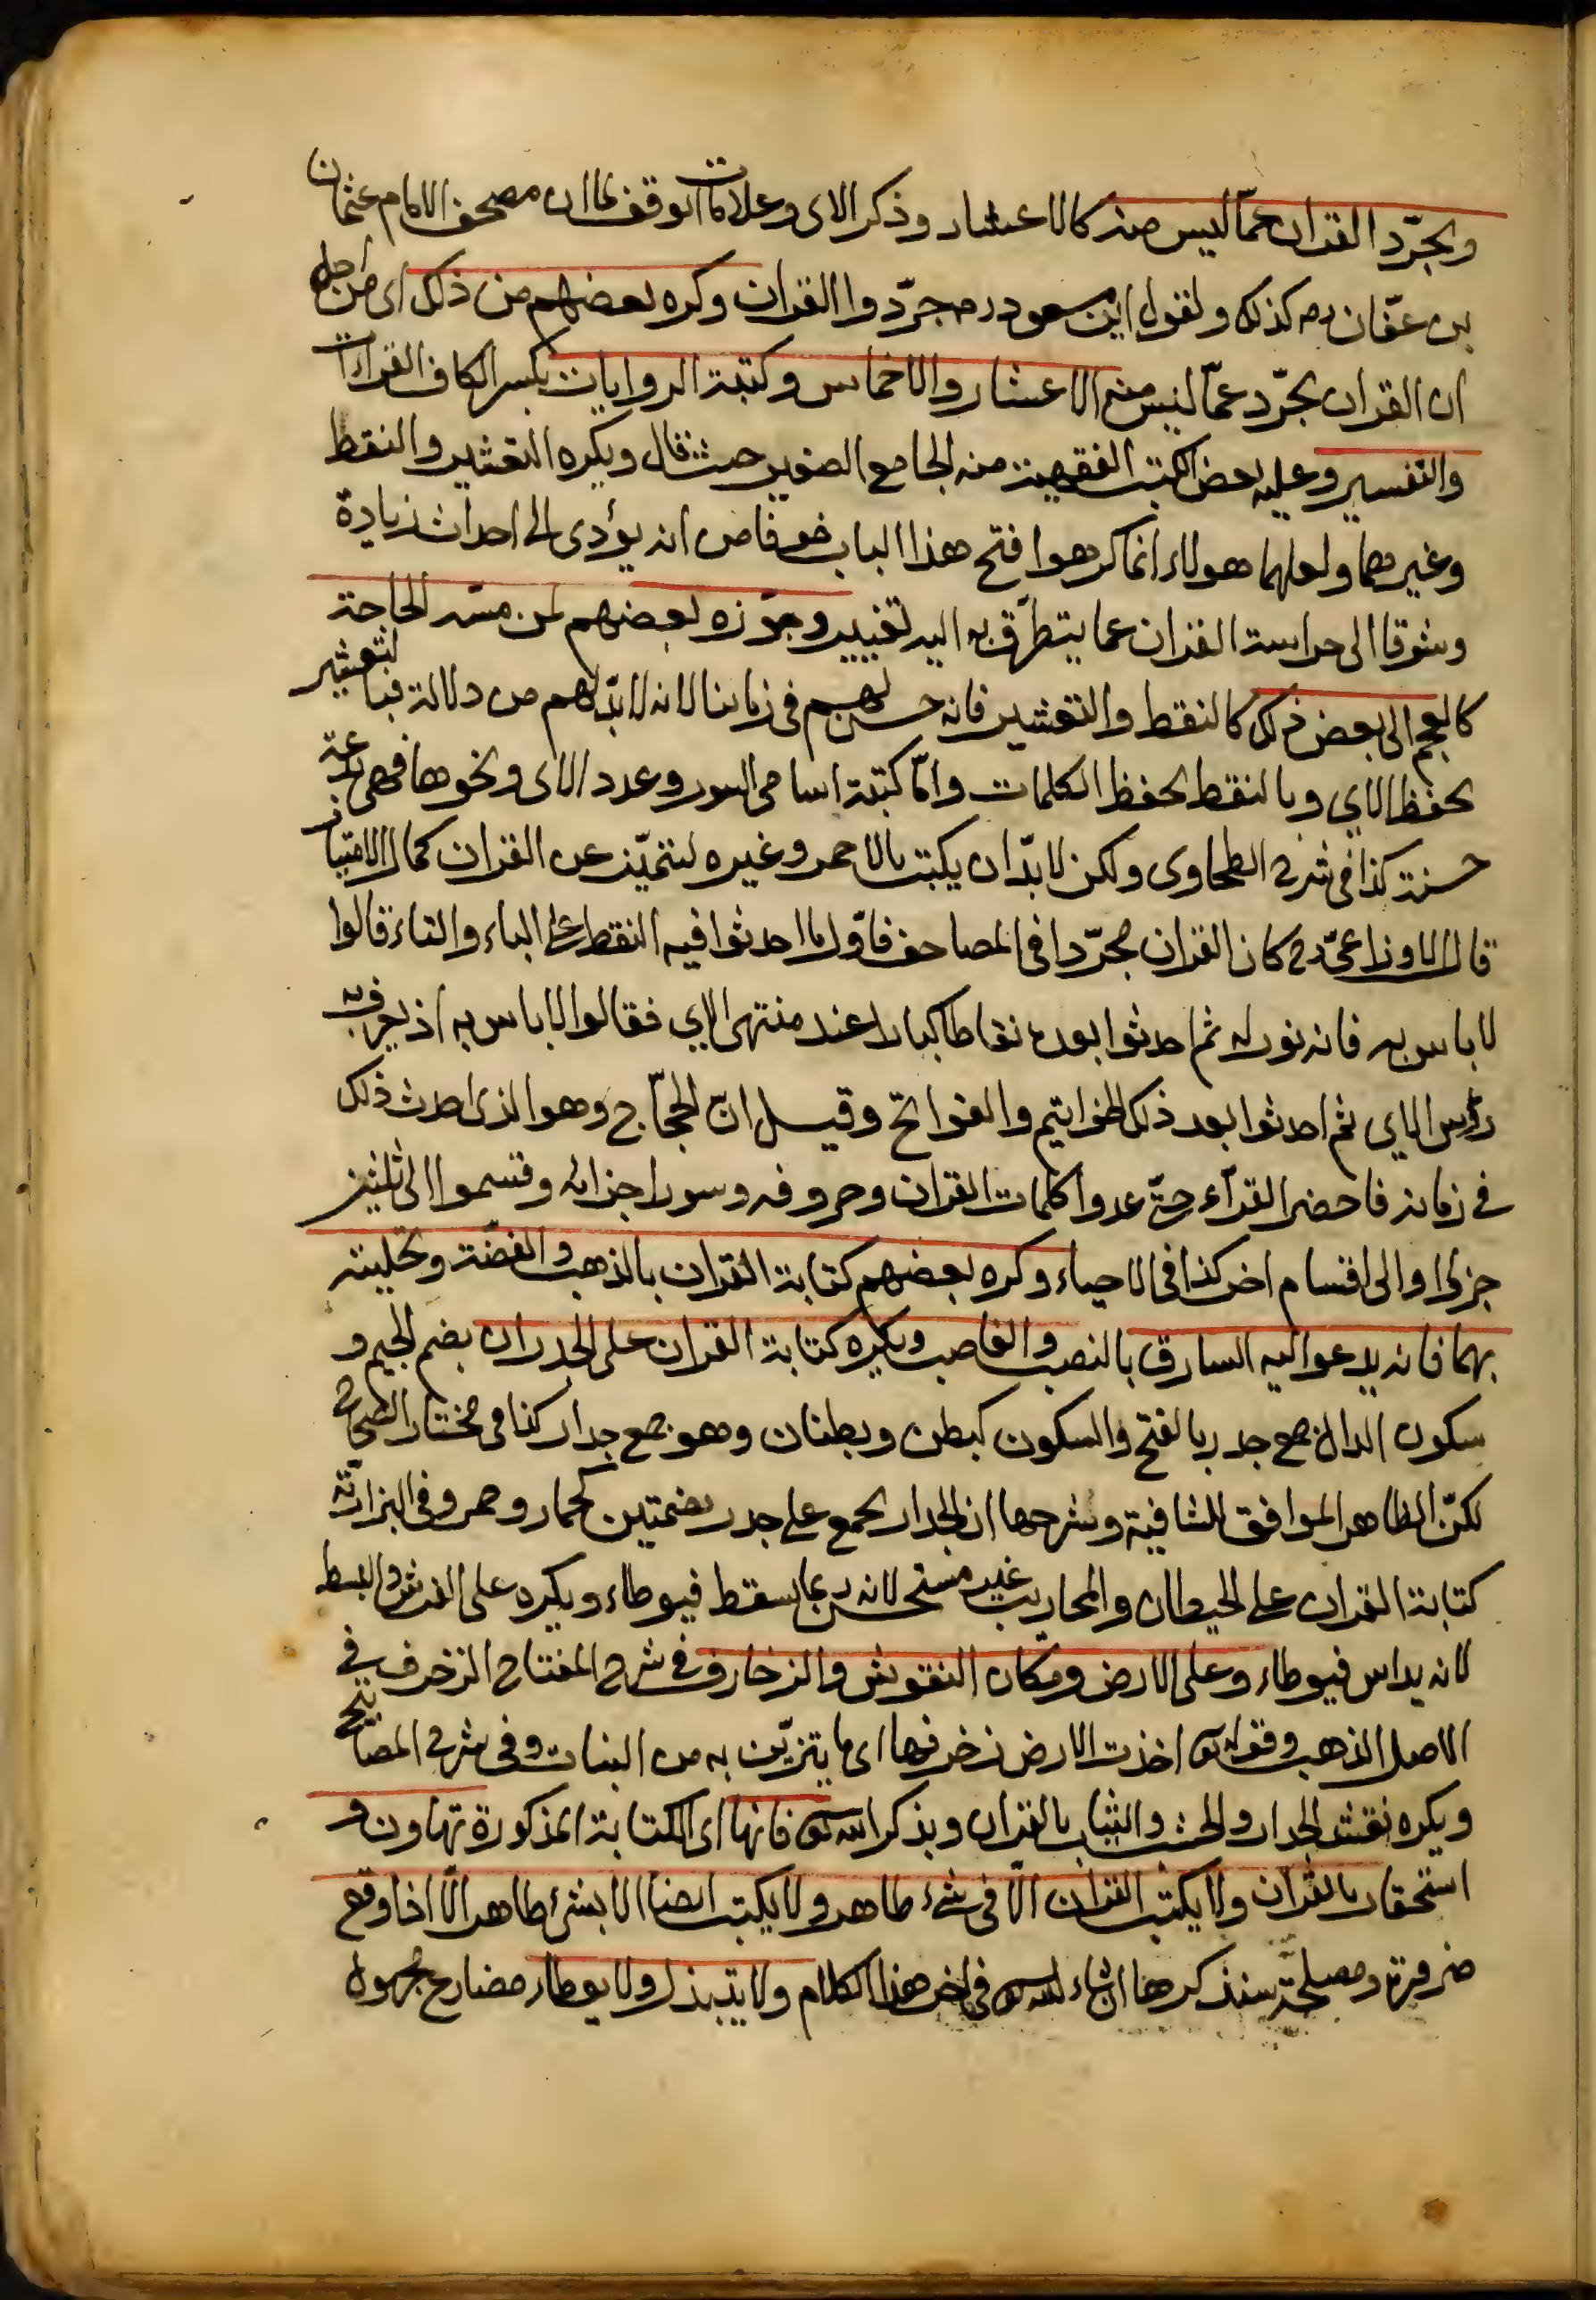 ويجرّد القران عمّا ليس منه كالاعشار وذكر الاى وعلامات الوقف لما ان مصحف الامام عثمان
بن عفّان رضه كذلك ولقول ابن مسعود رضه جرّدوا القران وكره بعضهم من ذلك اى من اجل
ان القران يجرّد عمّا ليس منه الاعشار والاخماس وكتبة الروايات بكسر الكاف القراات
والتفسير وعليه بعض الكتب الفقهية منه الجامع الصغير حيث قال ويكره التعشير والنقط
وغيرهما ولعلهما هولاء انما كرهوا فتح هذا الباب خوفا من انه يؤدى الى احداث زيادة
وشوقا الى حراسة القران عما يتطرّق به اليه تغيير وجوّزه بعضهم لمن مسّه الحاجة
كالعجم الى بعض ذلك كالنقط والتعشير فانه حسن لهم فى زماننا لانه لا بدّ لهم من دلالة فبالتعشير
يحفظ الاي وبالنقط يحفظ الكلمات وامّا كتبة اسامى السور وعدد الاى ونحوها فهى بدعة
حسنة كذا فى شرح الطحاوى ولكن لا بدّ ان يكتب بالاحمر وغيره لتتميّز عن القران كمال الامتياز
قال الاوزاعىّ رح كان القران مجرّدا فى المصاحف فاوّل ما احدثوا فيه النقط على الباء والتاء قالوا
لا باس به فانه نور له ثم احدثوا بعده نقاطا كبارا عند منتهى الاي فقالوا لا باس به اذ يعرف به
رؤس الاي ثم احدثوا بعد ذلك الخواتيم والفواتح وقيل ان الحجّاج وهو الذى احدث ذلك
فى زمانه فاحضر القرّاء حتّى عدوا كلمات القران وحروفه وسور اجزائه وقسموا الى ثلثين
جزءا والى اقسام اخر كذا فى الاحياء وكره بعضهم كتابة القران بالذهب والفضّة وتحليته
بهما فانه يدعو اليه السارق بالنصب والغاصب ويكره كتابة القران على الجدران بضم الجيم و
سكون الدال جمع جدر بالفتح والسكون كبطن وبطنان وهو جمع جدار كذا فى مختار الصحاح
لكنّ الظاهر الموافق للشافية وشرحها ان الجدار يجمع على جدر بضمتين كحمار وحمر وفى البزازيّة
كتابة القران على الحيطان والمحاريب غير مستحسن لانه ربما يسقط فيوطاء ويكره على الفرش والبسط
لانه يداس فيوطاء وعلى الارض ومكان النقوش والزخارف فى شرح المفتاح الزخرف فى
الاصل الذهب وقوله تعالى اخذت الارض زخرفها اى ما يتزيّن به من النبات وفى شرح المصابيح
ويكره نقش الجدار والخشب والثياب بالقران وبذكر الله تعالى فانها اى الكتابة المذكورة تهاون و
استحقار بالقران ولا يكتب القران الّا فى شىء طاهر ولا يكتب ايضا الا بشىء طاهر الّا اذا وقع
ضرورة ومصلحة سنذكرها ان شاء الله تعالى فى اخر هذا الكلام ولا يتبذل ولا يوطاء مضارع مجهول